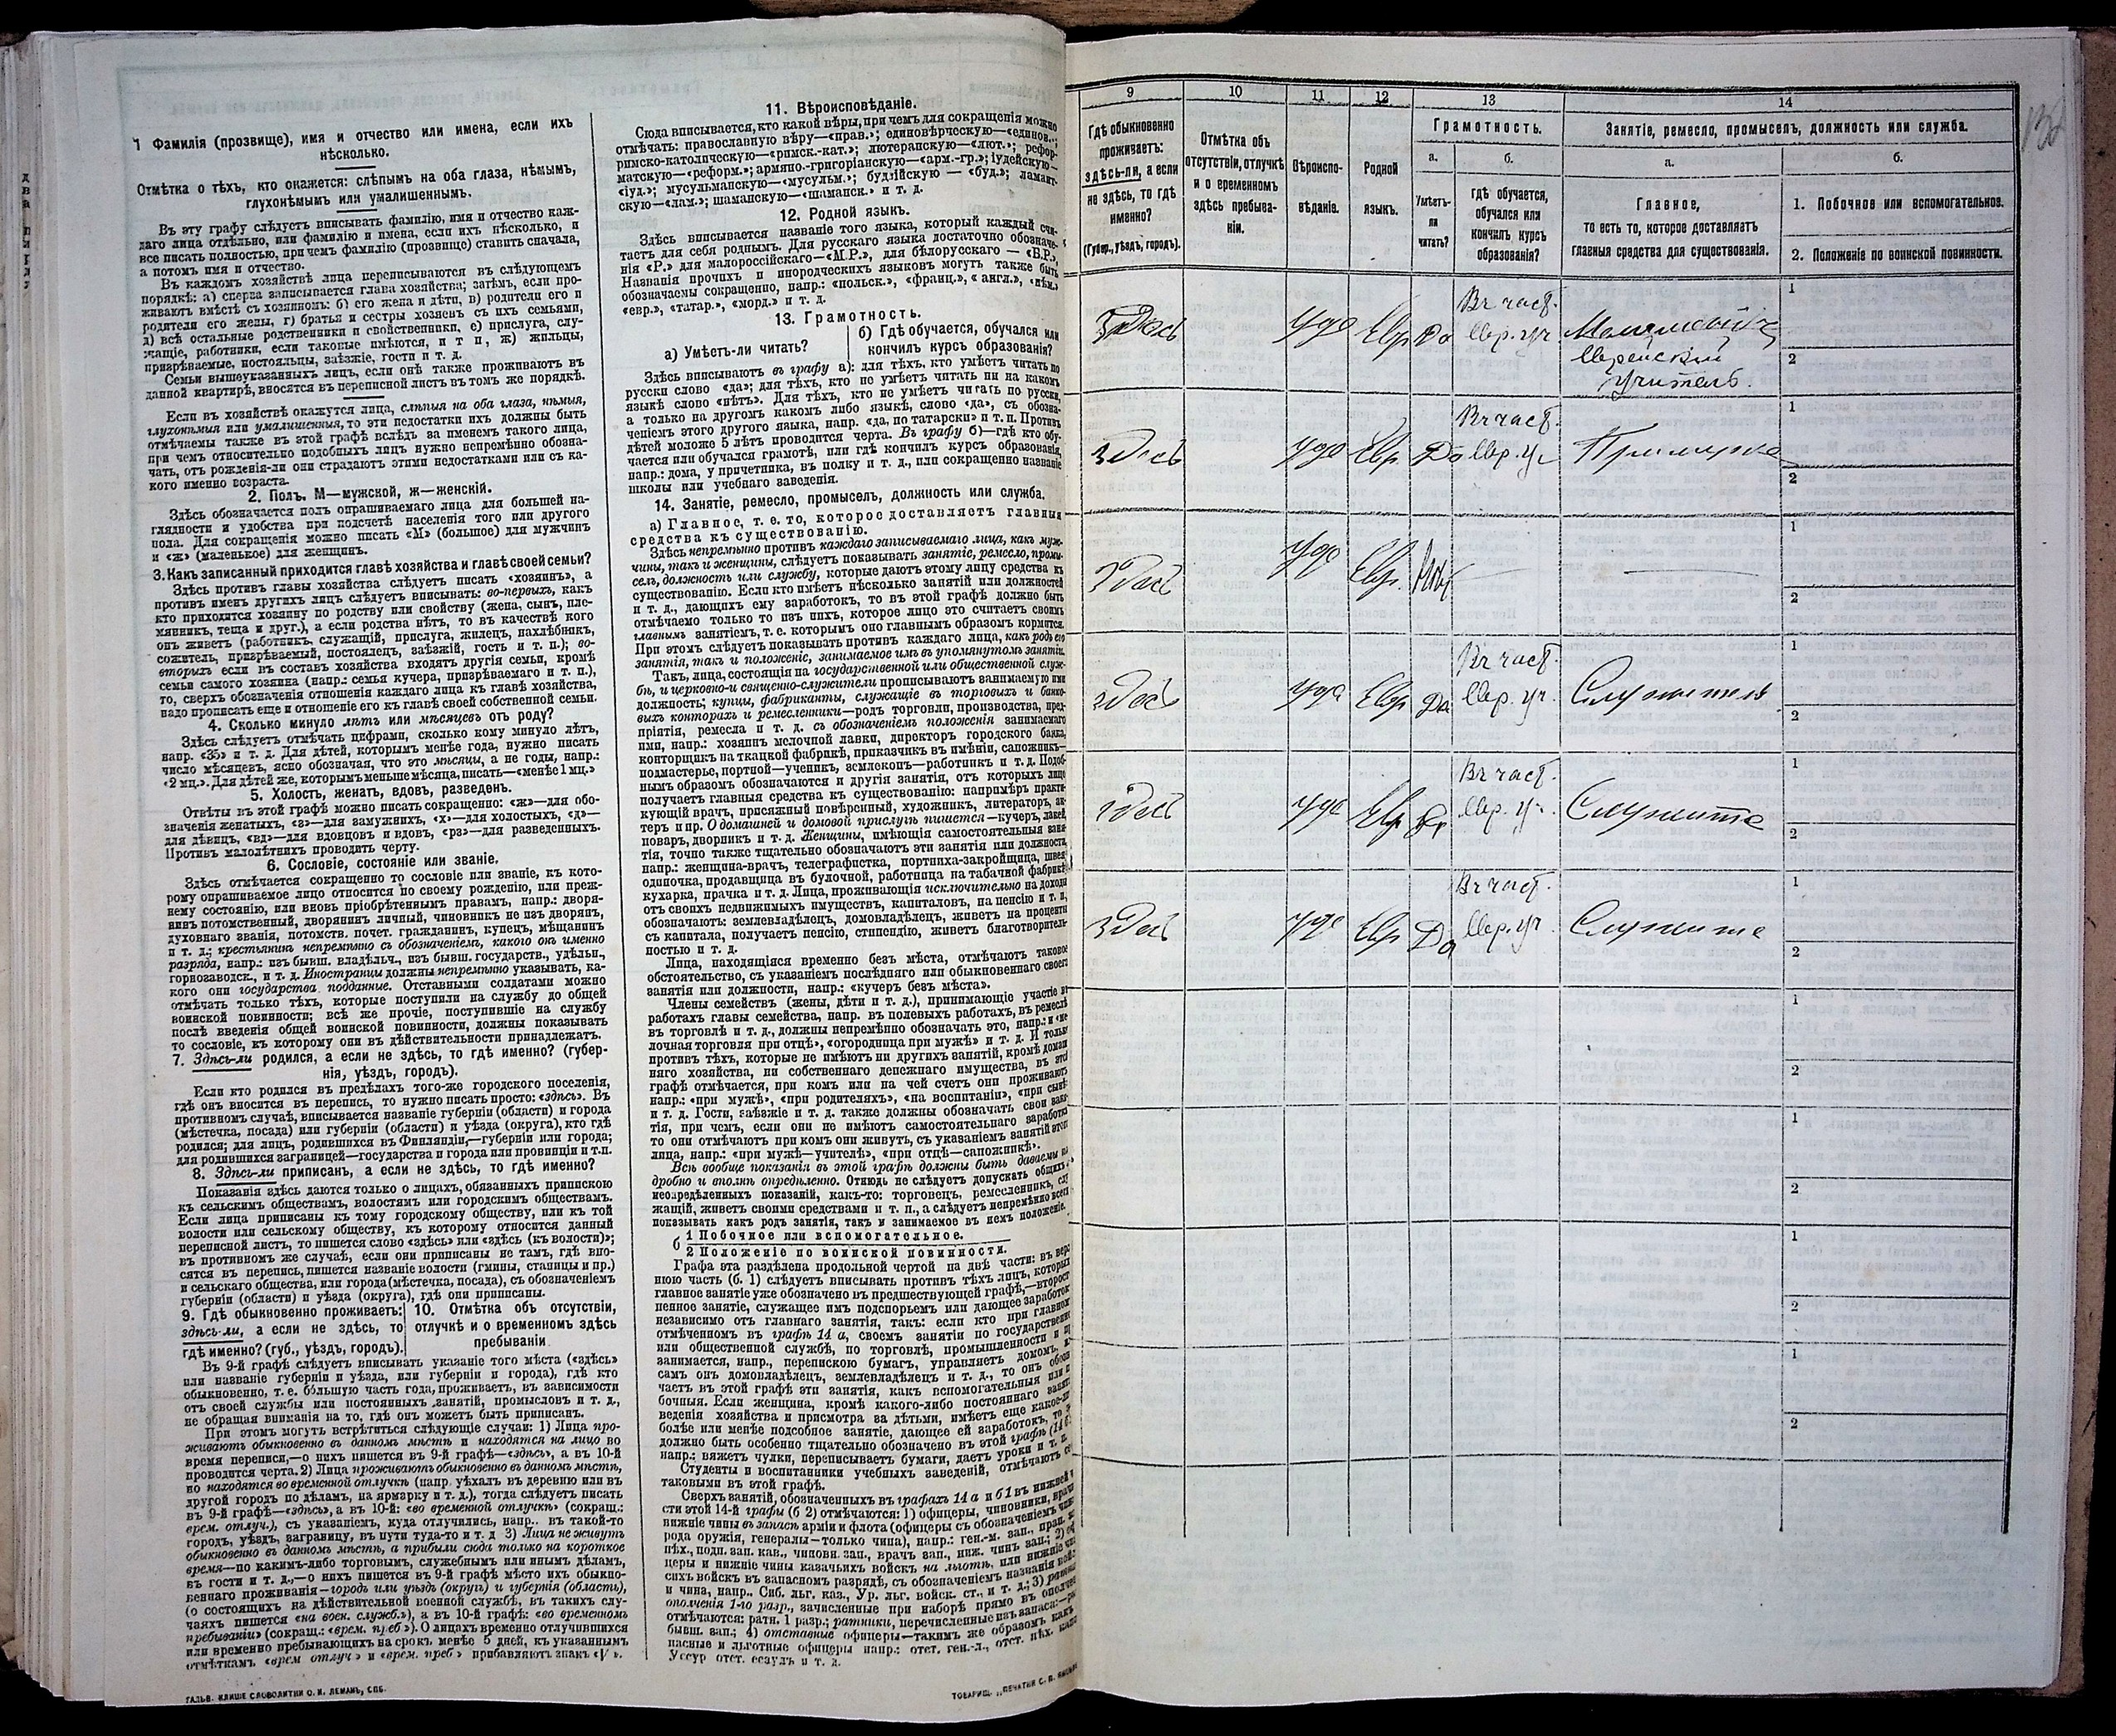 1 Фамилія (прозвище), имя и отчество или имена, если ихъ
нѣсколько.
Отмѣтка о тѣхъ, кто окажется: слѣпымъ на оба глаза, нѣмымъ,
глухонѣмымъ или умалишеннымъ.
Въ эту графу слѣдуетъ вписывать фамилію, имя и отчество каж-
даго лица отдѣльно, или фамилію и имена, если ихъ нѣсколько, и
все писать полностью, при чемъ фамилію (прозвище) ставить сначала,
а потомъ имя и отчество.
Въ каждомъ хозяйствѣ лица переписываются въ слѣдующемъ
порядкѣ: а) сперва записывается глава хозяйства; затѣмъ, если про-
живаютъ вмѣстѣ съ хозяиномъ: б) его жена и дѣти, в) родители его и
родители его жены, г) братья и сестры хозяевъ съ ихъ семьями,
д) всѣ остальные родственники и свойственники, е) прислуга, слу-
жащіе, работники, если таковые имѣются, и т п, ж) жильцы,
призрѣваемые, постояльцы, заѣзжіе, гости и т. д.
Семьи вышеуказанныхъ лицъ, если онѣ также проживаютъ въ
данной квартирѣ, вносятся въ переписной листъ въ томъ же порядкѣ.
Если въ хозяйствѣ окажутся лица, слѣпыя на оба глаза, нѣмыя,
глухонѣмыя или умалишенныя, то эти недостатки ихъ должны быть
отмѣчаемы также въ этой графѣ вслѣдъ за именемъ такого лица,
при чемъ относительно подобныхъ лицъ нужно непремѣнно обозна-
чать, отъ рожденія-ли они страдаютъ этими недостатками или съ ка-
кого именно возраста.
2. Полъ. М—мужской, ж—женскій.
Здѣсь обозначается полъ опрашиваемаго лица для большей на-
глядности и удобства при подсчетѣ населенія того или другого
пола. Для сокращенія можно писать «М» (большое) для мужчинъ
и «ж» (маленькое) для женщинъ.
3. Какъ записанный приходится главѣ хозяйства и главѣ своей семьи?
Здѣсь противъ главы хозяйства слѣдуетъ писать «хозяинъ», а
противъ именъ другихъ лицъ слѣдуетъ вписывать: во-первыхъ, какъ
кто приходится хозяину по родству или свойству (жена, сынъ, пле-
мянникъ, теща и друг.), а если родства нѣтъ, то въ качествѣ кого
онъ живетъ (работникъ, служащій, прислуга, жилецъ, нахлѣбникъ,
сожитель, призрѣваемый, постоялецъ, заѣзжій, гость и т. п.); во-
вторыхъ если въ составъ хозяйства входятъ другія семьи, кромѣ
семьи самого хозяина (напр.: семья кучера, призрѣваемаго и т. п.),
то, сверхъ обозначенія отношенія каждаго лица къ главѣ хозяйства,
надо прописать еще и отношеніе его къ главѣ своей собственной семьи.
4. Сколько минуло лѣтъ или мѣсяцевъ отъ роду?
Здѣсь слѣдуетъ отмѣчать цифрами, сколько кому минуло лѣтъ,
напр. «35» и т. д. Для дѣтей, которымъ менѣе года, нужно писать
число мѣсяцевъ, ясно обозначая, что это мѣсяцы, а не годы, напр.:
«2 мц.». Для дѣтей же, которымъ меньше мѣсяца, писать—«менѣе 1 мц.»
5. Холостъ, женатъ, вдовъ, разведенъ.
Отвѣты въ этой графѣ можно писать сокращенно: «ж»—для обо-
значенія женатыхъ, «з»—для замужнихъ, «х»—для холостыхъ, «д»—
для дѣвицъ, «вд»—для вдовцовъ и вдовъ, «рз»—для разведенныхъ.
Противъ малолѣтнихъ проводить черту.
6. Сословіе, состояніе или званіе.
Здѣсь отмѣчается сокращенно то сословіе или званіе, къ кото-
рому опрашиваемое лицо относится по своему рожденію, или преж-
нему состоянію, или вновь пріобрѣтеннымъ правамъ, напр.: дворя-
нинъ потомственный, дворянинъ личный, чиновникъ не изъ дворянъ,
духовнаго званія, потомств. почет. гражданинъ, купецъ, мѣщанинъ
и т. д.; крестьянинъ непремѣнно съ обозначеніемъ, какого онъ именно
разряда, напр.: изъ бывш. владѣльч., изъ бывш. государств., удѣльн.,
горнозаводск., и т. д. Иностранцы должны непремѣнно указывать, ка-
кого они государства подданные. Отставными солдатами можно
отмѣчать только тѣхъ, которые поступили на службу до общей
воинской повинности; всѣ же прочіе, поступившіе на службу
послѣ введенія общей воинской повинности, должны показывать
то сословіе, къ которому они въ дѣйствительности принадлежатъ.
7. Здѣсь-ли родился, а если не здѣсь, то гдѣ именно? (губер-
нія, уѣздъ, городъ).
Если кто родился въ предѣлахъ того-же городского поселенія,
гдѣ онъ вносится въ перепись, то нужно писать просто: «здѣсь». Въ
противномъ случаѣ, вписывается названіе губерніи (области) и города
(мѣстечка, посада) или губерніи (области) и уѣзда (округа), кто гдѣ
родился; для лицъ, родившихся въ Финляндіи,—губерніи или города;
для родившихся заграницей—государства и города или провинціи и т.п.
8. Здѣсь-ли приписанъ, а если не здѣсь, то гдѣ именно?
Показанія здѣсь даются только о лицахъ, обязанныхъ припискою
къ сельскимъ обществамъ, волостямъ или городскимъ обществамъ.
Если лица приписаны къ тому городскому обществу, или къ той
волости или сельскому обществу, къ которому относится данный
переписной листъ, то пишется слово «здѣсь» или «здѣсь (къ волости)»;
въ противномъ же случаѣ, если они приписаны не тамъ, гдѣ вно-
сятся въ перепись, пишется названіе волости (гмины, станицы и пр.)
и сельскаго общества, или города (мѣстечка, посада), съ обозначеніемъ
губерніи (области) и уѣзда (округа), гдѣ они приписаны.
9. Гдѣ обыкновенно проживаетъ:
здѣсь-ли, а если не здѣсь, то
гдѣ именно? (губ., уѣздъ, городъ).
10. Отмѣтка объ отсутствіи,
отлучкѣ и о временномъ здѣсь
пребываніи.
Въ 9-й графѣ слѣдуетъ вписывать указаніе того мѣста («здѣсь»
или названіе губерніи и уѣзда, или губерніи и города), гдѣ кто
обыкновенно, т. е. бо́льшую часть года, проживаетъ, въ зависимости
отъ своей службы или постоянныхъ занятій, промысловъ и т. д.,
не обращая вниманія на то, гдѣ онъ можетъ быть приписанъ.
При этомъ могутъ встрѣтиться слѣдующіе случаи: 1) Лица про-
живаютъ обыкновенно въ данномъ мѣстѣ и находятся на лицо во
время переписи,—о нихъ пишется въ 9-й графѣ—«здѣсь», а въ 10-й
проводится черта. 2) Лица проживаютъ обыкновенно въ данномъ мѣстѣ,
но находятся во временной отлучкѣ (напр. уѣхалъ въ деревню или въ
другой городъ по дѣламъ, на ярмарку и т. д.), тогда слѣдуетъ писать
въ 9-й графѣ—«здѣсь», а въ 10-й: «во временной отлучкѣ» (сокращ.:
врем. отлуч.), съ указаніемъ, куда отлучились, напр.. въ такой-то
городъ, уѣздъ, заграницу, въ пути туда-то и т. д 3) Лица не живутъ
обыкновенно въ данномъ мѣстѣ, а прибыли сюда только на короткое
время—по какимъ-либо торговымъ, служебнымъ или инымъ дѣламъ,
въ гости и т. д.,—о нихъ пишется въ 9-й графѣ мѣсто ихъ обыкно-
веннаго проживанія—городъ или уѣздъ (округъ) и губернія (область),
(о состоящихъ на дѣйствительной военной службѣ, въ такихъ слу-
чаяхъ пишется «на воен. службѣ.»), а въ 10-й графѣ: «во временномъ
пребываніи» (сокращ.: «врем. преб»). О лицахъ временно отлучившихся
или временно пребывающихъ на срокъ менѣе 5 дней, къ указаннымъ
отмѣткамъ «врем отлуч» и «врем. преб» прибавляютъ знакъ «V».
ГАЛЬВ. КЛИШЕ СЛОВОЛИТНИ О. И. ЛЕМАНЪ, СПБ.
11. Вѣроисповѣданіе.
Сюда вписывается, кто какой вѣры, при чемъ для сокращенія можно
отмѣчать: православную вѣру—«прав.»; единовѣрческую—«единов.»;
римско-католическую—«римск.-кат.»; лютеранскую—«лют.»; рефор-
матскую—«реформ.»; армяно-григоріанскую—«арм.-гр.»; іудейскую—
«іуд.»; мусульманскую—«мусульм.»; буддійскую — «буд.»; ламаит-
скую—«лам.»; шаманскую—«шаманск.» и т. д.
12. Родной языкъ.
Здѣсь вписывается названіе того языка, который каждый счи-
таетъ для себя роднымъ. Для русскаго языка достаточно обозначе-
нія «Р.» для малороссійскаго—«М.Р.», для бѣлорусскаго — «Б.Р.»,
Названія прочихъ и инородческихъ языковъ могутъ также быть
обозначаемы сокращенно, напр.: «польск.», «франц.», «англ.», «нѣм.»
«евр.», «татар.», «морд.» и т. д.
13. Грамотность.
а) Умѣетъ-ли читать?
б) Гдѣ обучается, обучался или
кончилъ курсъ образованія?
Здѣсь вписываютъ въ графу а): для тѣхъ, кто умѣетъ читать по
русски слово «да»; для тѣхъ, кто не умѣетъ читать ни на какомъ
языкѣ слово «нѣтъ». Для тѣхъ, кто не умѣетъ читать по русски,
а только на другомъ какомъ либо языкѣ, слово «да», съ обозна-
ченіемъ этого другого языка, напр. «да, по татарски» и т. п. Противъ
дѣтей моложе 5 лѣтъ проводится черта. Въ графу б)—гдѣ кто обу-
чается или обучался грамотѣ, или гдѣ кончилъ курсъ образованія,
напр.: дома, у причетника, въ полку и т. д., или сокращенно названіе
школы или учебнаго заведенія.
14. Занятіе, ремесло, промыселъ, должность или служба.
а) Главное, т. е. то, которое доставляетъ главныя
средства къ существованію.
Здѣсь непремѣнно противъ каждаго записываемаго лица, какъ муж-
чины, такъ и женщины, слѣдуетъ показывать занятіе, ремесло, промы-
селъ, должность или службу, которые даютъ этому лицу средства къ
существованію. Если кто имѣетъ нѣсколько занятій или должностей
и т. д., дающихъ ему заработокъ, то въ этой графѣ должно быть
отмѣчаемо только то изъ нихъ, которое лицо это считаетъ своимъ
главнымъ занятіемъ, т. е. которымъ оно главнымъ образомъ кормится.
При этомъ слѣдуетъ показывать противъ каждаго лица, какъ родъ его
занятія, такъ и положеніе, занимаемое имъ въ упомянутомъ занятіи.
Такъ, лица, состоящія на государственной или общественной служ-
бѣ, и церковно-и священно-служители прописываютъ занимаемую ими
должность; купцы, фабриканты, служащіе въ торговыхъ и банко-
выхъ конторахъ и ремесленники—родъ торговли, производства, пред-
пріятія, ремесла и т. д. съ обозначеніемъ положенія занимаемаго
ими, напр.: хозяинъ мелочной лавки, директоръ городского банка,
конторщикъ на ткацкой фабрикѣ, приказчикъ въ имѣніи, сапожникъ—
подмастерье, портной—ученикъ, землекопъ—работникъ и т. д. Подоб-
нымъ образомъ обозначаются и другія занятія, отъ которыхъ лицо
получаетъ главныя средства къ существованію: напримѣръ практи-
кующій врачъ, присяжный повѣренный, художникъ, литераторъ, ак-
теръ и пр. О домашней и домовой прислугѣ пишется—кучеръ, лакей,
поваръ, дворникъ и т. д. Женщины, имѣющія самостоятельныя заня-
тія, точно также тщательно обозначаютъ эти занятія или должности,
напр.: женщина-врачъ, телеграфистка, портниха-закройщица, швея
одиночка, продавщица въ булочной, работница на табачной фабрикѣ
кухарка, прачка и т. д. Лица, проживающія исключительно на доходы
отъ своихъ недвижимыхъ имуществъ, капиталовъ, на пенсію и т. п,
обозначаютъ: землевладѣлецъ, домовладѣлецъ, живетъ на проценты
съ капитала, получаетъ пенсію, стипендію, живетъ благотворитель-
ностью и т. д.
Лица, находящіяся временно безъ мѣста, отмѣчаютъ таковое
обстоятельство, съ указаніемъ послѣдняго или обыкновеннаго своего
занятія или должности, напр.: «кучеръ безъ мѣста».
Члены семействъ (жены, дѣти и т. д.), принимающіе участіе въ
работахъ главы семейства, напр. въ полевыхъ работахъ, въ ремеслѣ
въ торговлѣ и т. д., должны непремѣнно обозначать это, напр.: «ме
лочная торговля при отцѣ», «огородница при мужѣ» и т. д. И только
противъ тѣхъ, которые не имѣютъ ни другихъ занятій, кромѣ домаш
няго хозяйства, ни собственнаго денежнаго имущества, въ этой
графѣ отмѣчается, при комъ или на чей счетъ они проживаютъ
напр.: «при мужѣ», «при родителяхъ», «на воспитаніи», «при сынѣ»
и т. д. Гости, заѣзжіе и т. д. также должны обозначать свои заня-
тія, при чемъ, если они не имѣютъ самостоятельнаго заработка
то они отмѣчаютъ при комъ они живутъ, съ указаніемъ занятій этого
лица, напр.: «при мужѣ—учителѣ», «при отцѣ—сапожникѣ».
Всѣ вообще показанія въ этой графѣ должны быть даваемы по
дробно и вполнѣ опредѣленно. Отнюдь не слѣдуетъ допускать общихъ,
неопредѣленныхъ показаній, какъ-то: торговецъ, ремесленникъ, слу
жащій, живетъ своими средствами и т. п., а слѣдуетъ непремѣнно всегда
показывать какъ родъ занятія, такъ и занимаемое въ немъ положеніе.
б 1 Побочное или вспомогательное.
2 Положеніе по воинской повинности.
Графа эта раздѣлена продольной чертой на двѣ части: въ верх
нюю часть (б. 1) слѣдуетъ вписывать противъ тѣхъ лицъ, которыхъ
главное занятіе уже обозначено въ предшествующей графѣ,—второст
пенное занятіе, служащее имъ подспорьемъ или дающее заработок
независимо отъ главнаго занятія, такъ: если кто при главном
отмѣченномъ въ графѣ 14 а, своемъ занятіи по государственн
или общественной службѣ, по торговлѣ, промышленности и пр
занимается, напр., перепискою бумагъ, управляетъ домомъ, и
самъ онъ домовладѣлецъ, землевладѣлецъ и т. д., то онъ обозн
чаетъ въ этой графѣ эти занятія, какъ вспомогательныя или п
бочныя. Если женщина, кромѣ какого-либо постояннаго занят
веденія хозяйства и присмотра за дѣтьми, имѣетъ еще какое-ли
болѣе или менѣе подсобное занятіе, дающее ей заработокъ, то э
должно быть особенно тщательно обозначено въ этой графѣ (14 б
напр.: вяжетъ чулки, переписываетъ бумаги, даетъ уроки и т. п.
Студенты и воспитанники учебныхъ заведеній, отмѣчаютъ се
таковыми въ этой графѣ.
Сверхъ занятій, обозначенныхъ въ графахъ 14 а и б 1 въ нижней ч
сти этой 14-й графы (б 2) отмѣчаются: 1) офицеры, чиновники, врачи
нижніе чины въ запасѣ арміи и флота (офицеры съ обозначеніемъ чина
рода оружія, генералы—только чина), напр.: ген.-м. зап., прап. зап
пѣх., подп. зап. кав., чиновн. зап., врачъ зап., ниж. чинъ зап.; 2) оф
церы и нижніе чины казачьихъ войскъ на льготѣ, или нижніе чин
сихъ войскъ въ запасномъ разрядѣ, съ обозначеніемъ названія войск
и чина, напр.. Сиб. льг. каз., Ур. льг. войск. ст., и т. д.; 3) ратники
ополченія 1-го разр., зачисленные при наборѣ прямо въ ополчен
отмѣчаются: ратн. 1 разр.; ратники, перечисленные изъ запаса:—рат
бывш. зап.; 4) отставные офицеры—такимъ же образомъ, какъ
пасные и льготные офицеры напр.: отст. ген.-л., отст. пѣх. капи
Уссур отст. есаулъ и т. д.
ТОВАРИЩ. „ПЕЧАТНИ С. П.
9
10
11
12
13
14
Гдѣ обыкновенно
проживаетъ:
здѣсь-ли, а если
не здѣсь, то гдѣ
именно?
(Губер., уѣздъ, городъ).
Отмѣтка объ
отсутствіи, отлучкѣ
и о временномъ
здѣсь пребыва-
ніи.
Вѣроиспо-
вѣданіе.
Родной
языкъ.
Грамотность.
а.
Умѣетъ-
ли
читать?
б.
Гдѣ обучается,
обучался или
кончилъ курсъ
образованія?
Занятіе, ремесло, промыселъ, должность или служба.
а.
Главное,
то есть то, которое доставляетъ
главныя средства для существованія.
б.
1. Побочное или вспомогательное.
2. Положеніе по воинской повинности.
Здесь Іуде Евр Да Въ част. Евр. уч 1
Еврейскій 2
Учитель.
Здесь Іуде Евр Да Въ част. Евр. уч 1
2
Здесь Іуде Евр. Нѣт 1
2
Здесь Іуде Евр Да Въ част. Евр. уч. Служитель 1
2
Здесь Іуде Евр Да Въ част. Евр. уч. 1
2
Здесь Іуде Евр Да Въ част. Евр. уч. 1
2
1
2
1
2
1
2
1
2